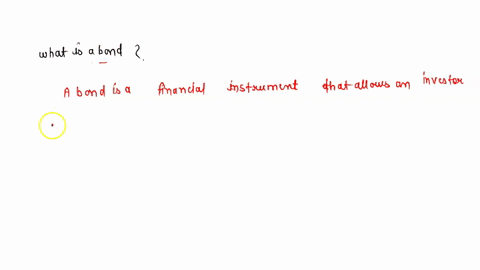 what is a bond ?
A bond is a financial instrument that allows an investor